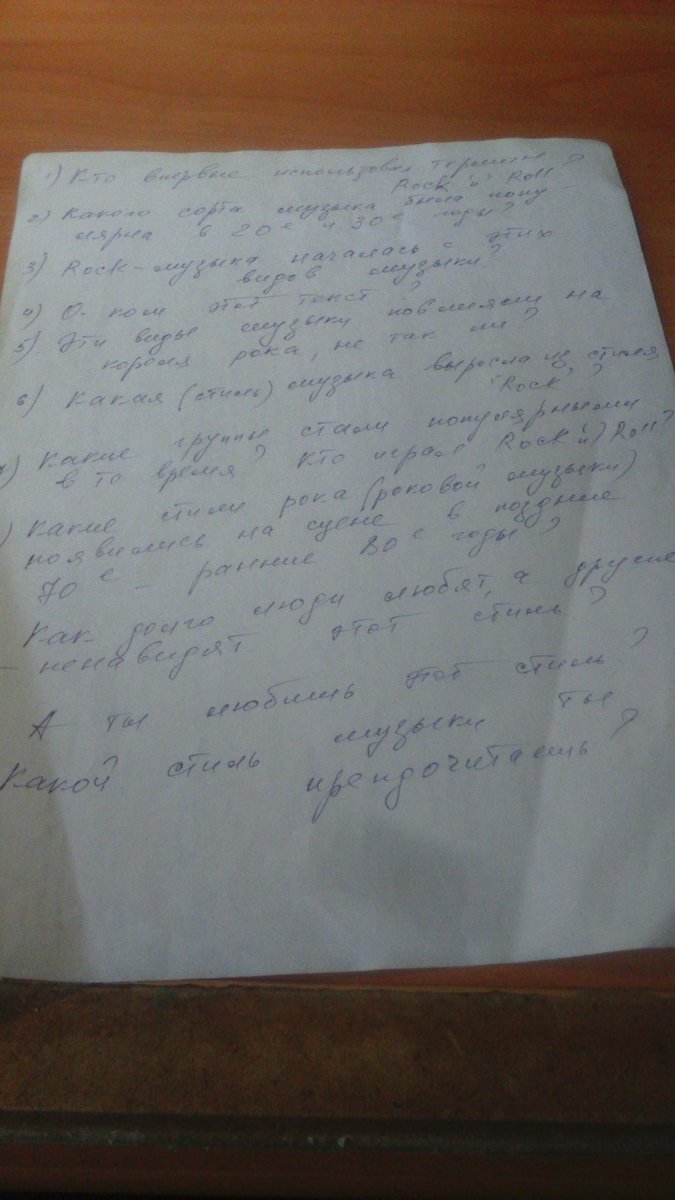 1) Кто впервые использовал термин
Rock 'n' Roll?
2) Какого сорта музыка была попу-
лярна в 20е и 30е годы?
3) Rock-музыка началась с этих
видов музыки?
4) О ком этот текст?
5) Эти виды музыки повлияли на
корения рока, не так ли?
6) Какая (стиль) музыка выросла из стиля
"Rock"?
) Какие группы стали популярными
в то время? Кто играл Rock 'n' Roll?
) Какие стили рока (роковой музыки)
появились на сцене в поздние
70е - ранние 80е годы?
Как долго люди любят, а другие
- ненавидят этот стиль?
А ты любишь этот стиль?
Какой стиль музыки ты
препдочитаешь?